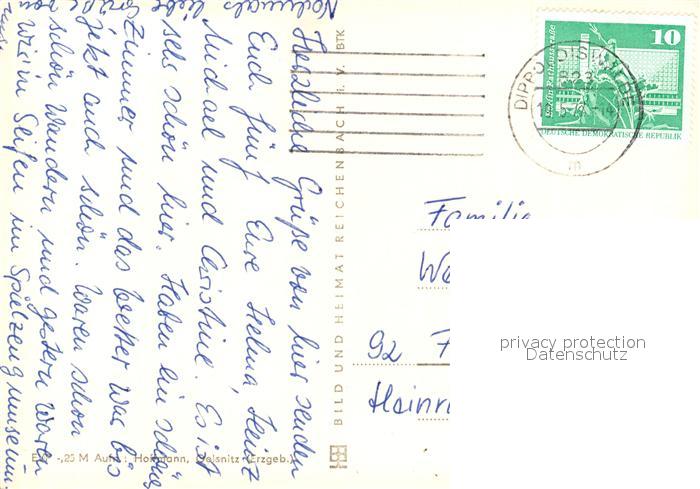 Herzliche Grüße von hier senden
Euch fünf Eure Helma, Heinz
Michael und Christine. Es ist
sehr schön hier. Haben ein schönes
Zimmer und das Wetter war bis
jetzt auch schön. Waren schon
schön Wandern und gestern waren
wir in Seifen im Spielzeugmuseum.
Nochmals liebe
Grüße von
BILD UND HEIMAT REICHENBACH I. V. BTK
-,25 M Aufn.: Hoffmann, Oelsnitz (Erzgeb.)
10
Berlin, Rathausstraße
DEUTSCHE DEMOKRATISCHE REPUBLIK
DIPPOLDISWALDE
m
Familie
We
92 F
Heinri
privacy protection
Datenschutz